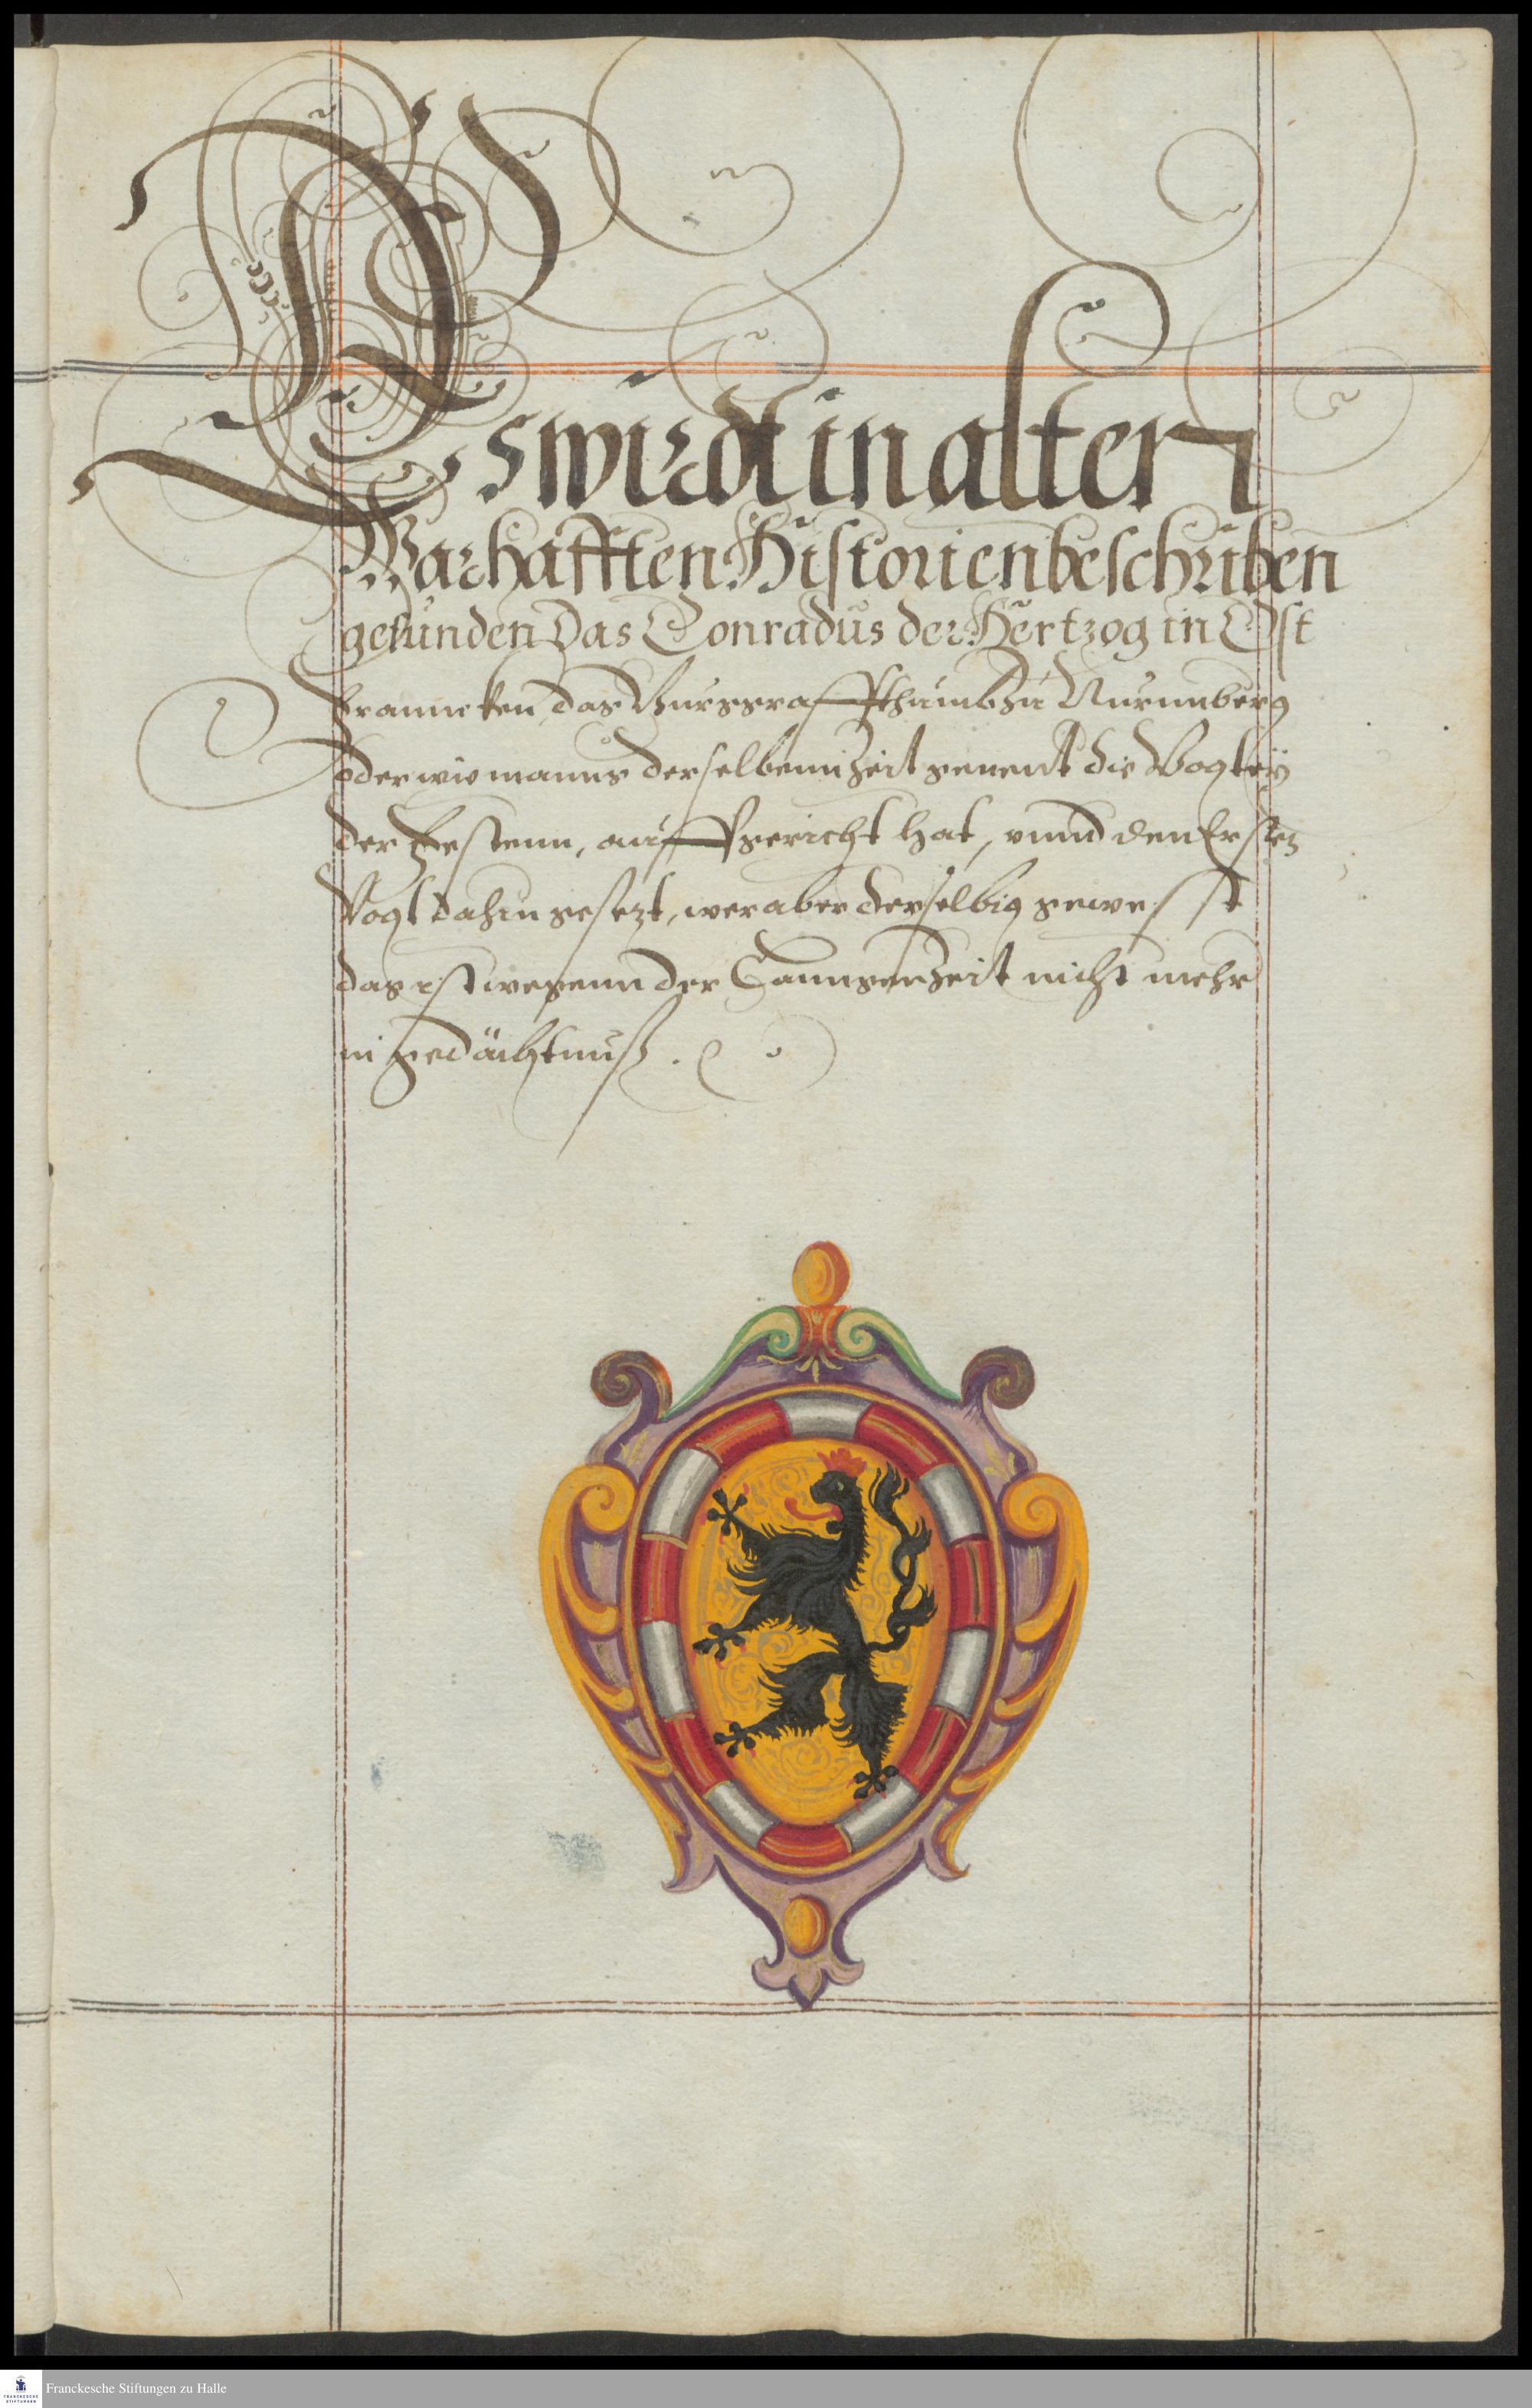 Es wirdt in alter
Warhafften Historien beschriben
gefunden Das Conradus der Hertzog in Ost
Franncken, das Burggraffthumb zu Nurmberg
oder wie manns derselbenn Zeit genent die Vogtey
der Vestenn, auffgericht hat, vnnd den Ersten
Vogt dahin gesezt, wer aber derselbig gewesst
das ist wegenn der Lanngen Zeit nicht mehr
in gedächtnuß.
FRANCKESCHE
STIFTUNGEN
Franckesche Stiftungen zu Halle